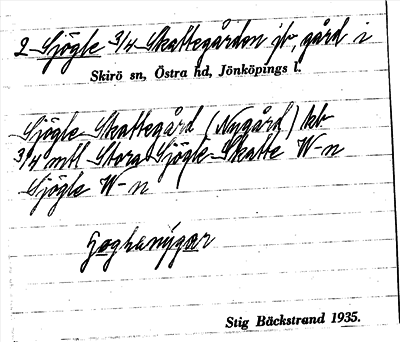 2 Sjögle 3/4 Skattegården jb, gård i
Skirö sn, Östra hd, Jönköpings l.
Sjögle Skattegård (Nygård) kb
3/4 mtl Stora Sjögle Skatte W-n
Sjögle W-n
goghanýgar
Stig Bäckstrand 1935.